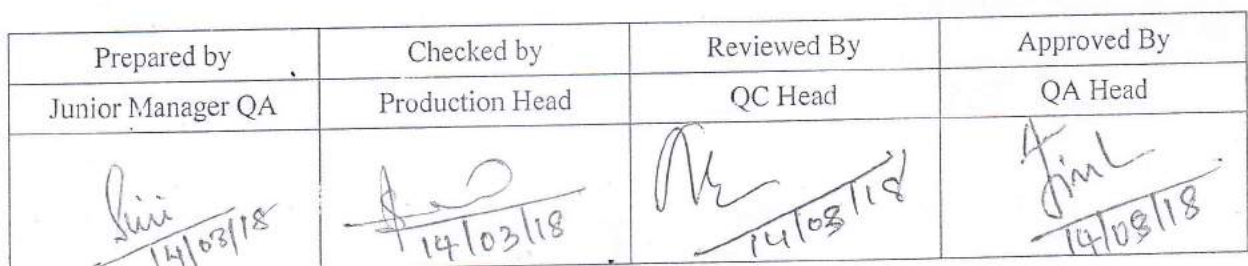 Prepared by Checked by Reviewed By Approved By
Junior Manager QA Production Head QC Head QA Head
14/03/18 14/03/18 14/03/18 14/03/18